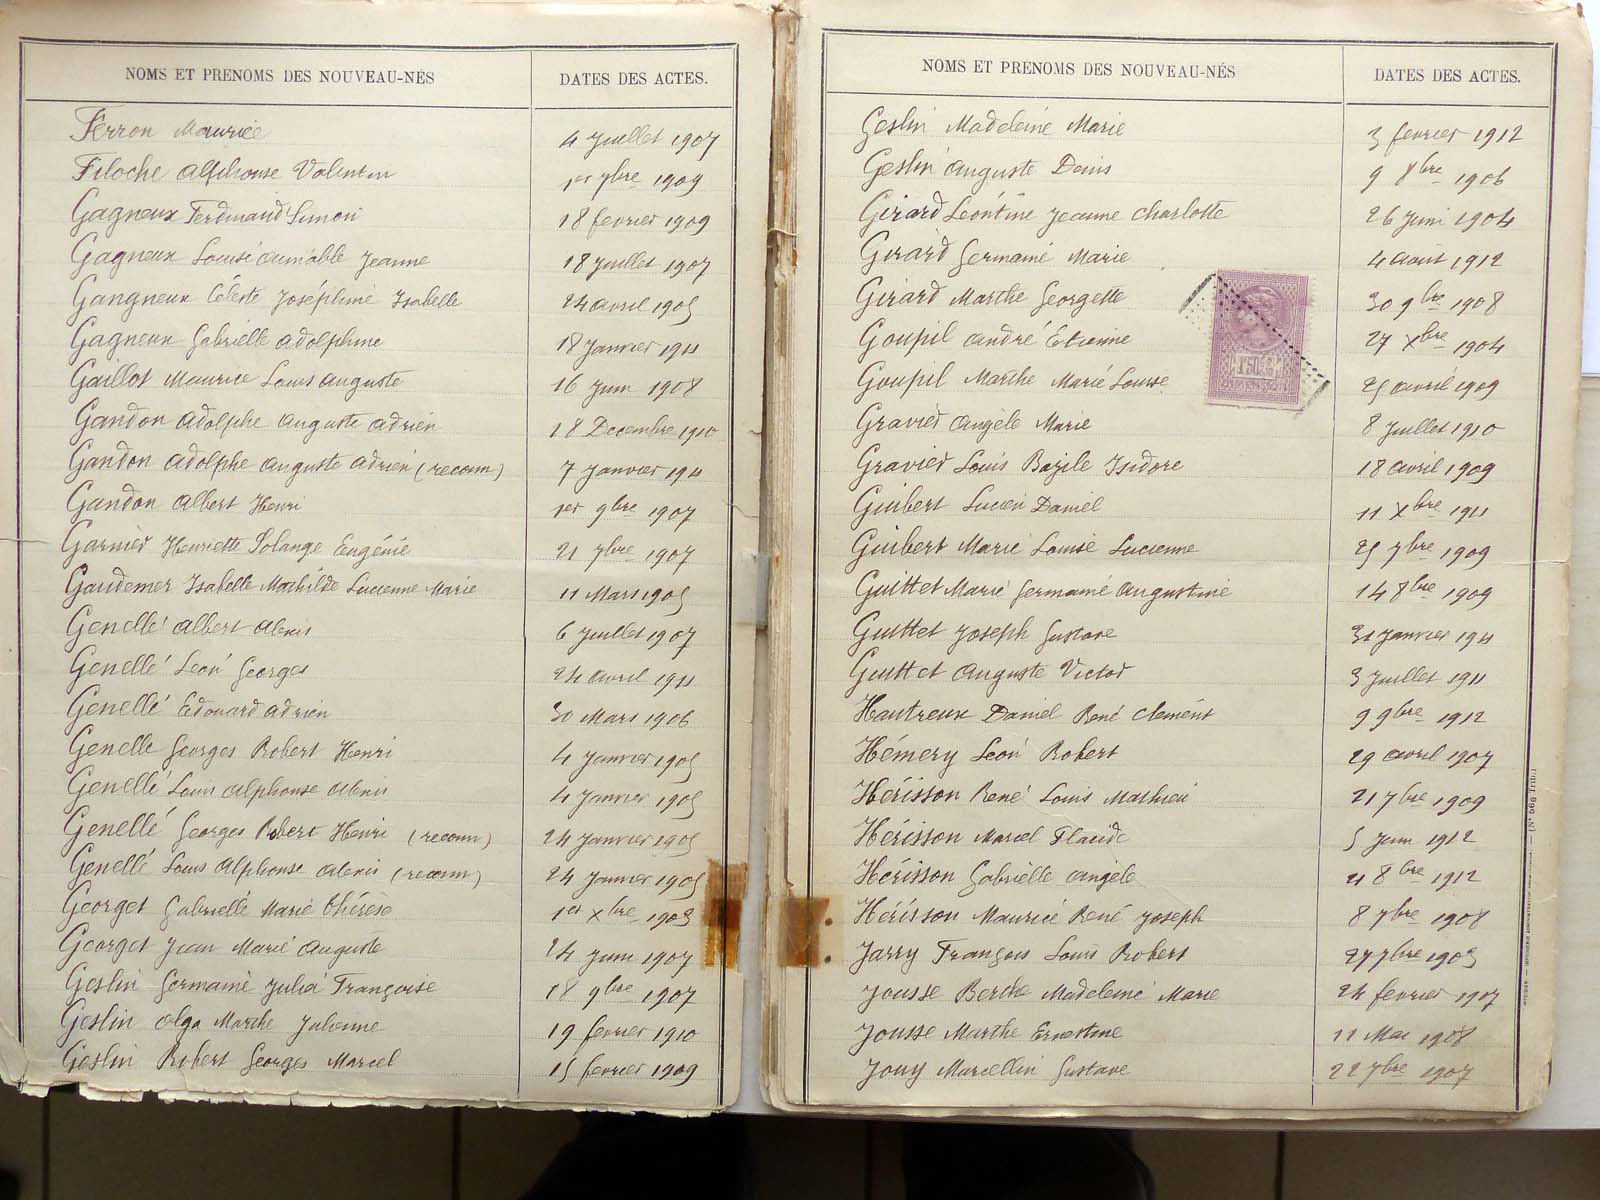 NOMS ET PRENOMS DES NOUVEAU-NÉS DATES DES ACTES.
Ferron Maurice 4 Juillet 1907
Filoche Alphonse Valentin 1er 7bre 1909
Gagneux Ferdinand Simon 18 février 1909
Gagneux Louise Aimable Jeanne 18 Juillet 1907
Gangneux Céleste Joséphine Isabelle 24 avril 1905
Gagneux Gabrielle Adolphine 18 Janvier 1911
Gaillot Maurice Louis Auguste 16 Juin 1908
Gandon Adolphe Auguste Adrien 18 Decembre 1910
Gandon Adolphe Auguste Adrien (reconn) 7 Janvier 1911
Gandon Albert Henri 1er 9bre 1907
Garnier Henriette Solange Eugénie 21 7bre 1907
Gaudemer Isabelle Mathilde Lucienne Marie 11 Mars 1905
Genellé Albert Alexis 6 Juillet 1907
Genellé Léon Georges 24 avril 1911
Genellé Edouard Adrien 30 Mars 1906
Genelle Georges Robert Henri 4 Janvier 1905
Genellé Louis Alphonse Alexis 4 Janvier 1905
Genellé Georges Robert Henri (reconn) 24 Janvier 1905
Genellé Louis Alphonse Alexis (reconn) 24 Janvier 1905
Georget Gabrielle Marie Thérèse 1er Xbre 1903
Georget Jean Marie Auguste 24 Juin 1907
Geslin Germaine Julia Françoise 18 9bre 1907
Geslin Olga Marthe Julienne 19 février 1910
Geslin Robert Georges Marcel 15 février 1909
NOMS ET PRENOMS DES NOUVEAU-NÉS DATES DES ACTES.
Geslin Madeleine Marie 3 février 1912
Geslin Auguste Denis 9 8bre 1906
Girard Léontine Jeanne Charlotte 26 Juin 1904
Girard Germaine Marie 4 août 1912
Girard Marthe Georgette 30 9bre 1908
Goupil André Etienne 27 Xbre 1904
Goupil Marthe Marie Louise 25 avril 1909
Gravier Angèle Marie 8 Juillet 1910
Gravier Louis Bazile Isidore 18 avril 1909
Guibert Lucien Daniel 11 Xbre 1911
Guibert Marie Louise Lucienne 25 7bre 1909
Guittet Marie Germaine Augustine 14 8bre 1909
Guittet Joseph Gustave 31 Janvier 1911
Guittet Auguste Victor 3 Juillet 1911
Hautreux Daniel René Clément 9 9bre 1912
Hémery Léon Robert 29 avril 1907
Hérisson René Louis Mathieu 21 7bre 1909
Hérisson Marcel Placide 5 Juin 1912
Hérisson Gabrielle Angèle 21 8bre 1912
Hérisson Maurice René Joseph 8 7bre 1908
Jarry François Louis Robert 27 7bre 1903
Jousse Berthe Madeleine Marie 24 février 1907
Jousse Marthe Ernestine 11 Mai 1908
Jouy Marcellin Gustave 22 7bre 1907
1F50
(N° 566 Trib.)